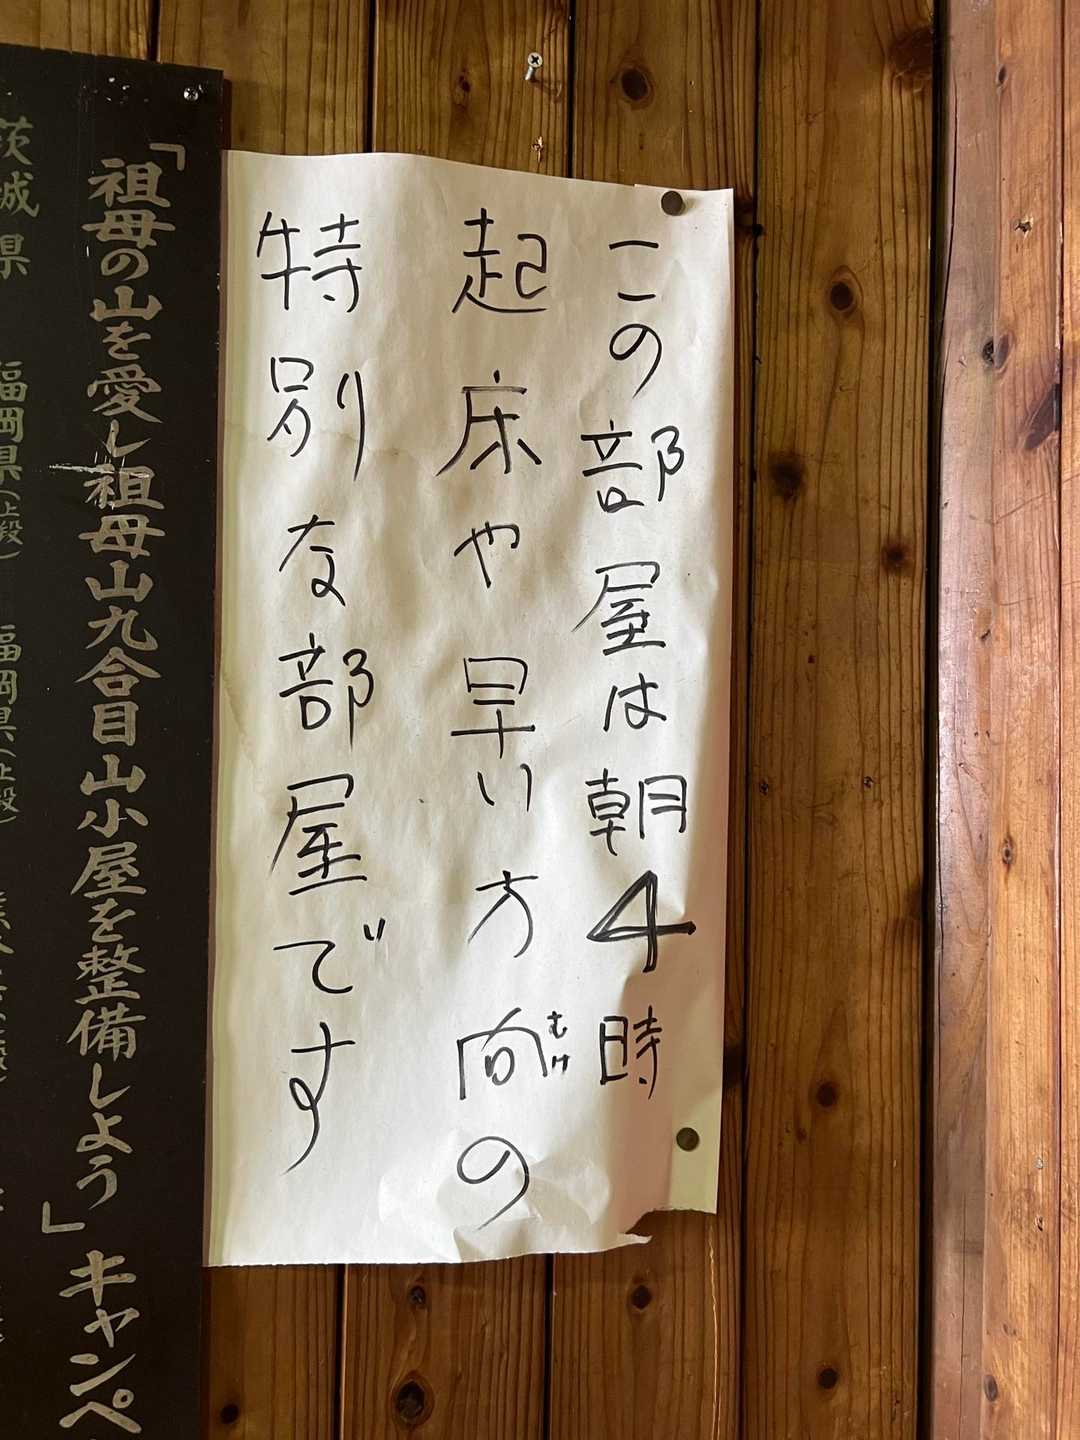 この部屋は朝4時
起床や早い方向の
むけ
特別な部屋です
「祖母の山を愛し祖母山九合目山小屋を整備しよう」キャンペ
茨城県 福岡県(上段) 福岡県(上段)